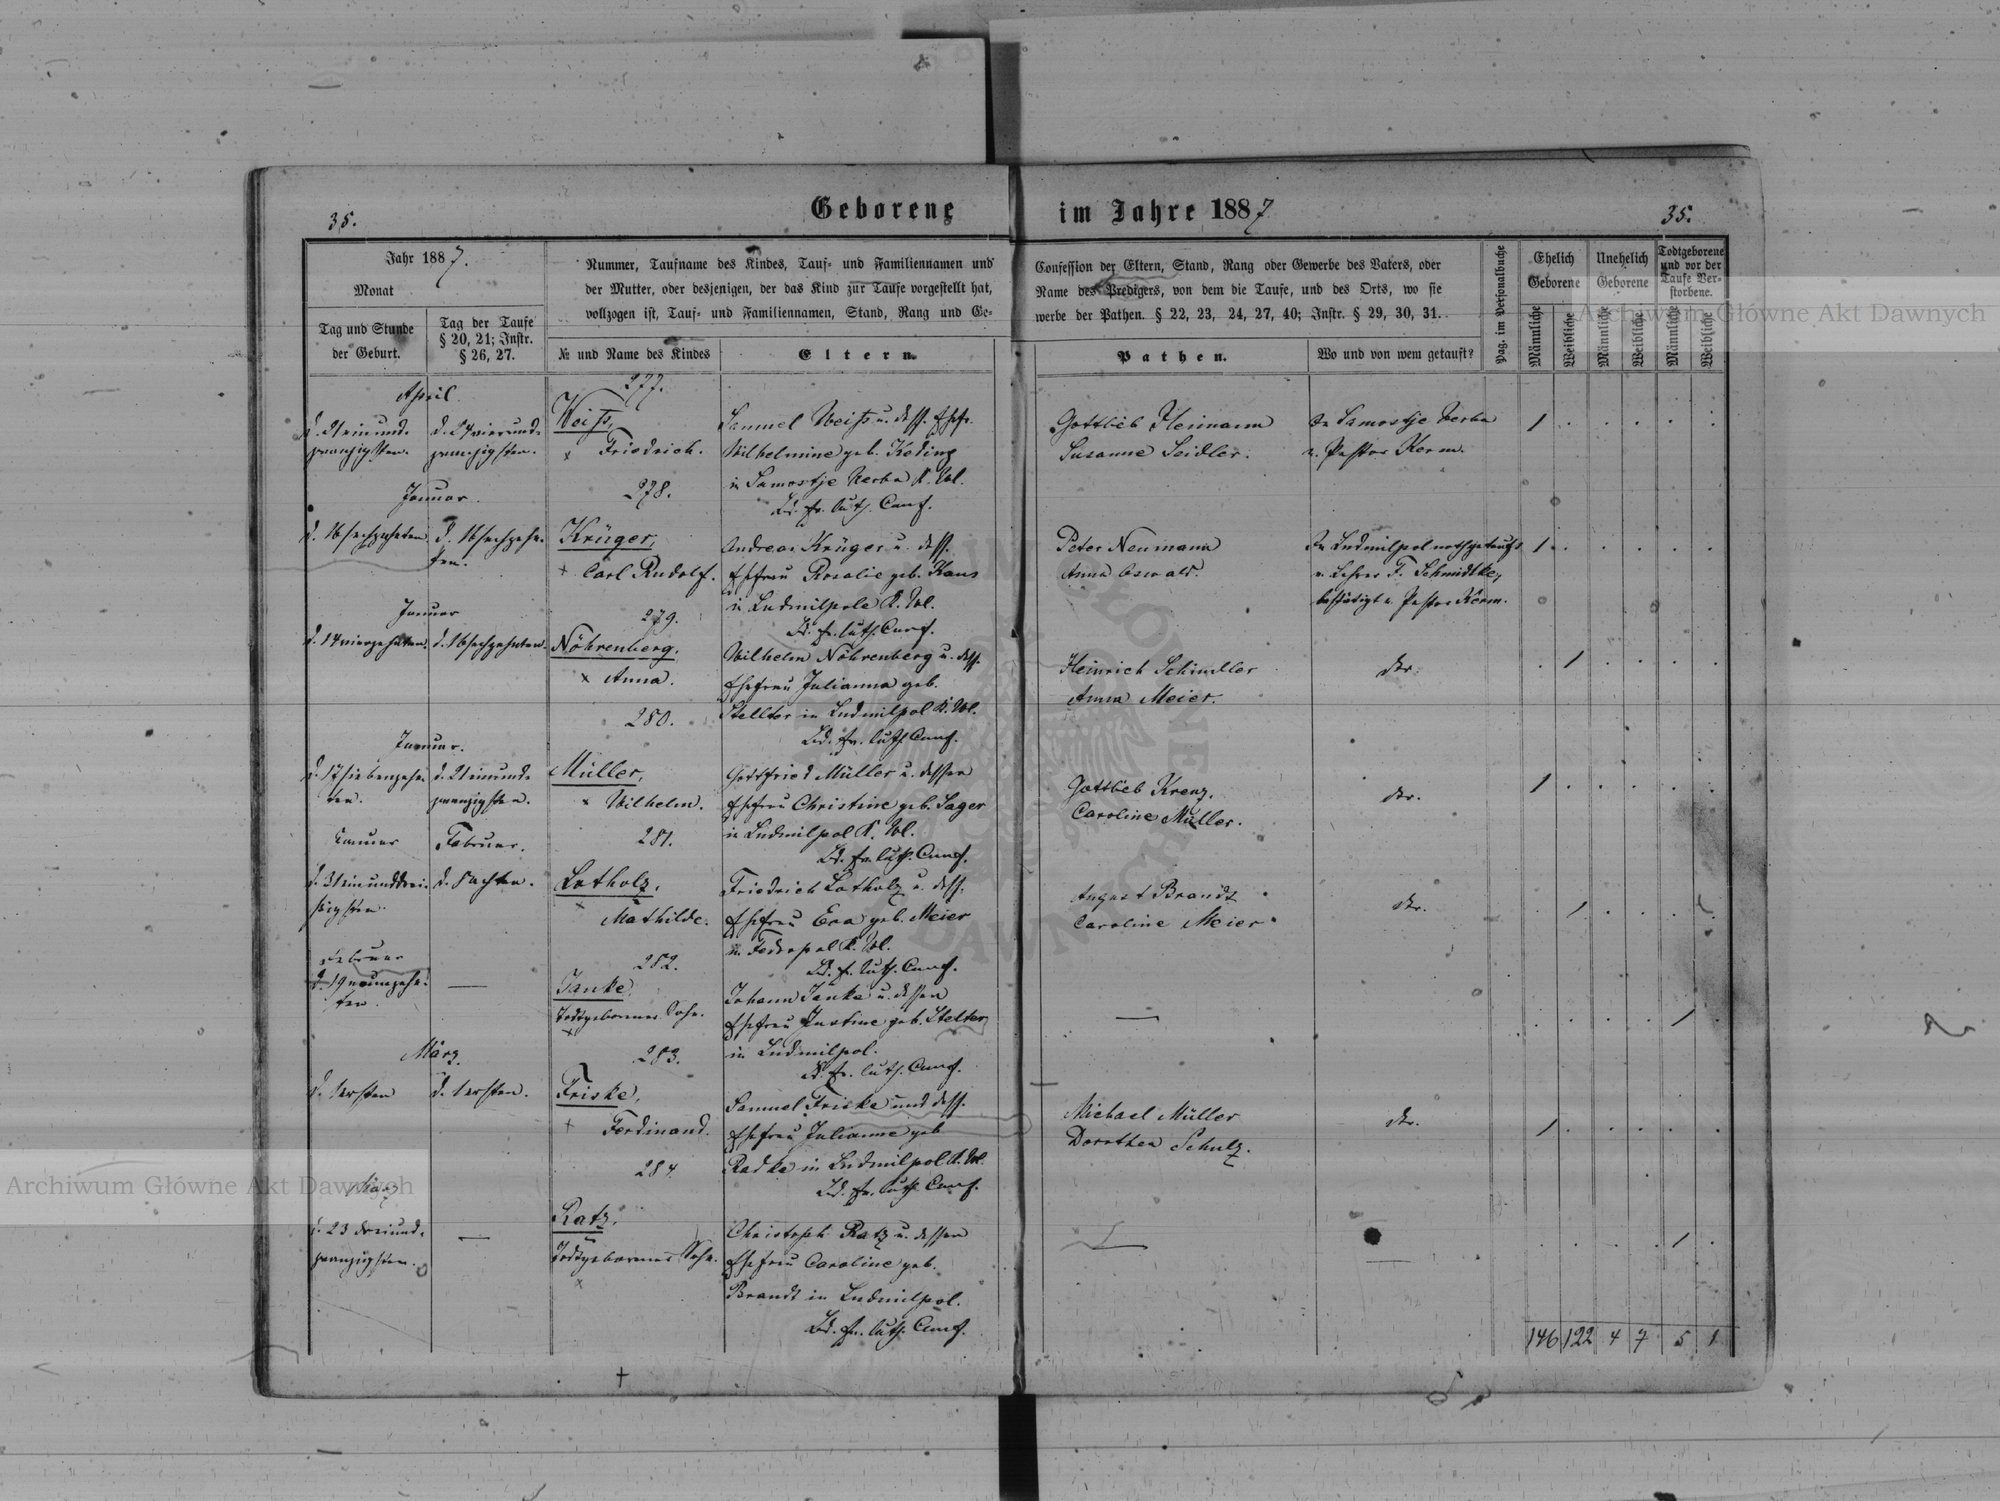 35.
Geborene im Jahre 1887
35.
Jahr 1887.
Monat
Tag und Stunde
der Geburt.
Tag der Taufe
§ 20, 21; Instr.
§ 26, 27.
Nummer, Taufname des Kindes, Tauf- und Familiennamen und
der Mutter, oder desjenigen, der das Kind zur Taufe vorgestellt hat,
vollzogen ist, Tauf- und Familiennamen, Stand, Rang und Ge-
№ und Name des Kindes
Eltern.
Confession der Eltern, Stand, Rang oder Gewerbe des Vaters, oder
Name des Predigers, von dem die Taufe, und des Orts, wo sie
werbe der Pathen. § 22, 23, 24, 27, 40; Instr. § 29, 30, 31.
Pathen.
Wo und von wem getauft?
Pag. im Personalbuche
Ehelich
Geborene
Unehelich
Geborene
Todtgeborene
und vor der
Taufe Ver-
storbene.
Männliche
Weibliche
Männliche
Weibliche
Männliche
Weibliche
April
d. 21 einund-
zwanzigsten.
d. 24 vierund-
zwanzigsten.
277.
Weiss,
Friedrich.
Samuel Weiss u. dess. Ehefr.
Wilhelmine geb. Keding
in Samostje Werba K. Wol.
Bd. ev. luth. Conf.
Gottlieb Heimann
Susanne Seidler.
In Samostje Werba
v. Pastor Kerm.
1
Januar.
d. 16 sechzehnten
d. 16 sechzehn-
ten.
278.
Krüger,
Carl Rudolf.
Andreas Krüger u. dess.
Ehefrau Rosalie geb. Kaus
in Ludmilpole K. Wol.
Bd. ev. luth. Conf.
Peter Neumann
Anna Oswald.
In Ludmilpol nothgetauft
v. Lehrer F. Schmidtke,
bestätigt v. Pastor Kerm.
1
Januar
d. 14 vierzehnten.
d. 16 sechzehnten.
279.
Nöhrenberg.
Anna.
Wilhelm Nöhrenberg u. dess.
Ehefrau Julianna geb.
Stellter in Ludmilpol K. Wol.
Bd. ev. luth. Conf.
Heinrich Schindler
Anna Meier.
dtr.
1
Januar.
d. 17 siebenzehn-
ten.
d. 21 einund-
zwanzigsten.
280.
Müller,
Wilhelm.
Gottfried Müller u. dessen
Ehefrau Christine geb. Sager
in Ludmilpol K. Wol.
Bd. ev. luth. Conf.
Gottlieb Krenz.
Caroline Müller.
dtr.
1
Januar
Februar.
d. 31 einunddrei-
ßigsten.
d. 8 achten.
281.
Lotholz,
Mathilde.
Friedrich Lotholz u. dess.
Ehefrau Eva geb. Meier
in Fedropol K. Wol.
Bd. ev. luth. Conf.
August Brandt
Caroline Meier
dtr.
1
Februar
d. 19 neunzehn-
ten.
282.
Janke
Todtgeborener Sohn.
Johann Janke u. dessen
Ehefrau Justine geb. Stelter
in Ludmilpol.
Bd. ev. luth. Conf.
1
März.
d. 1 ersten
d. 1 ersten.
283.
Friske,
Ferdinand.
Samuel Friske und dess.
Ehefrau Julianne geb
Radke in Ludmilpol K. Wol.
Bd. ev. luth. Conf.
Michael Müller
Dorothea Schulz.
dtr.
1
März
d. 23 dreiund-
zwanzigsten.
284.
Ratz,
Todtgeborener Sohn.
Christoph Ratz u. dessen
Ehefrau Caroline geb.
Brandt in Ludmilpol.
Bd. ev. luth. Conf.
1
146 122 4 7 5 1
Archiwum Główne Akt Dawnych
Archiwum Główne Akt Dawnych